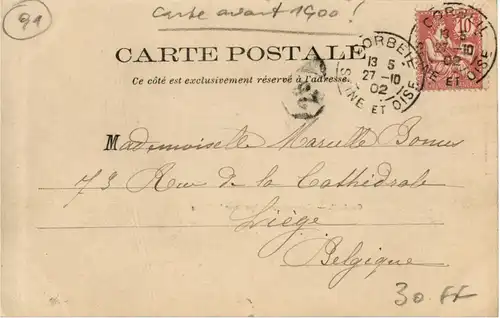 91
Carte avant 1900!
CARTE POSTALE
Ce côté est exclusivement réservé à l'adresse.
CORBEIL
13 5
27 -10
02
SEINE ET OISE
CORBEIL
13 5
27 -10
02
SEINE ET OISE
10
Mademoiselle Marcelle
73 Rue de la Cathédrale
Liége
Belgique
30 FF